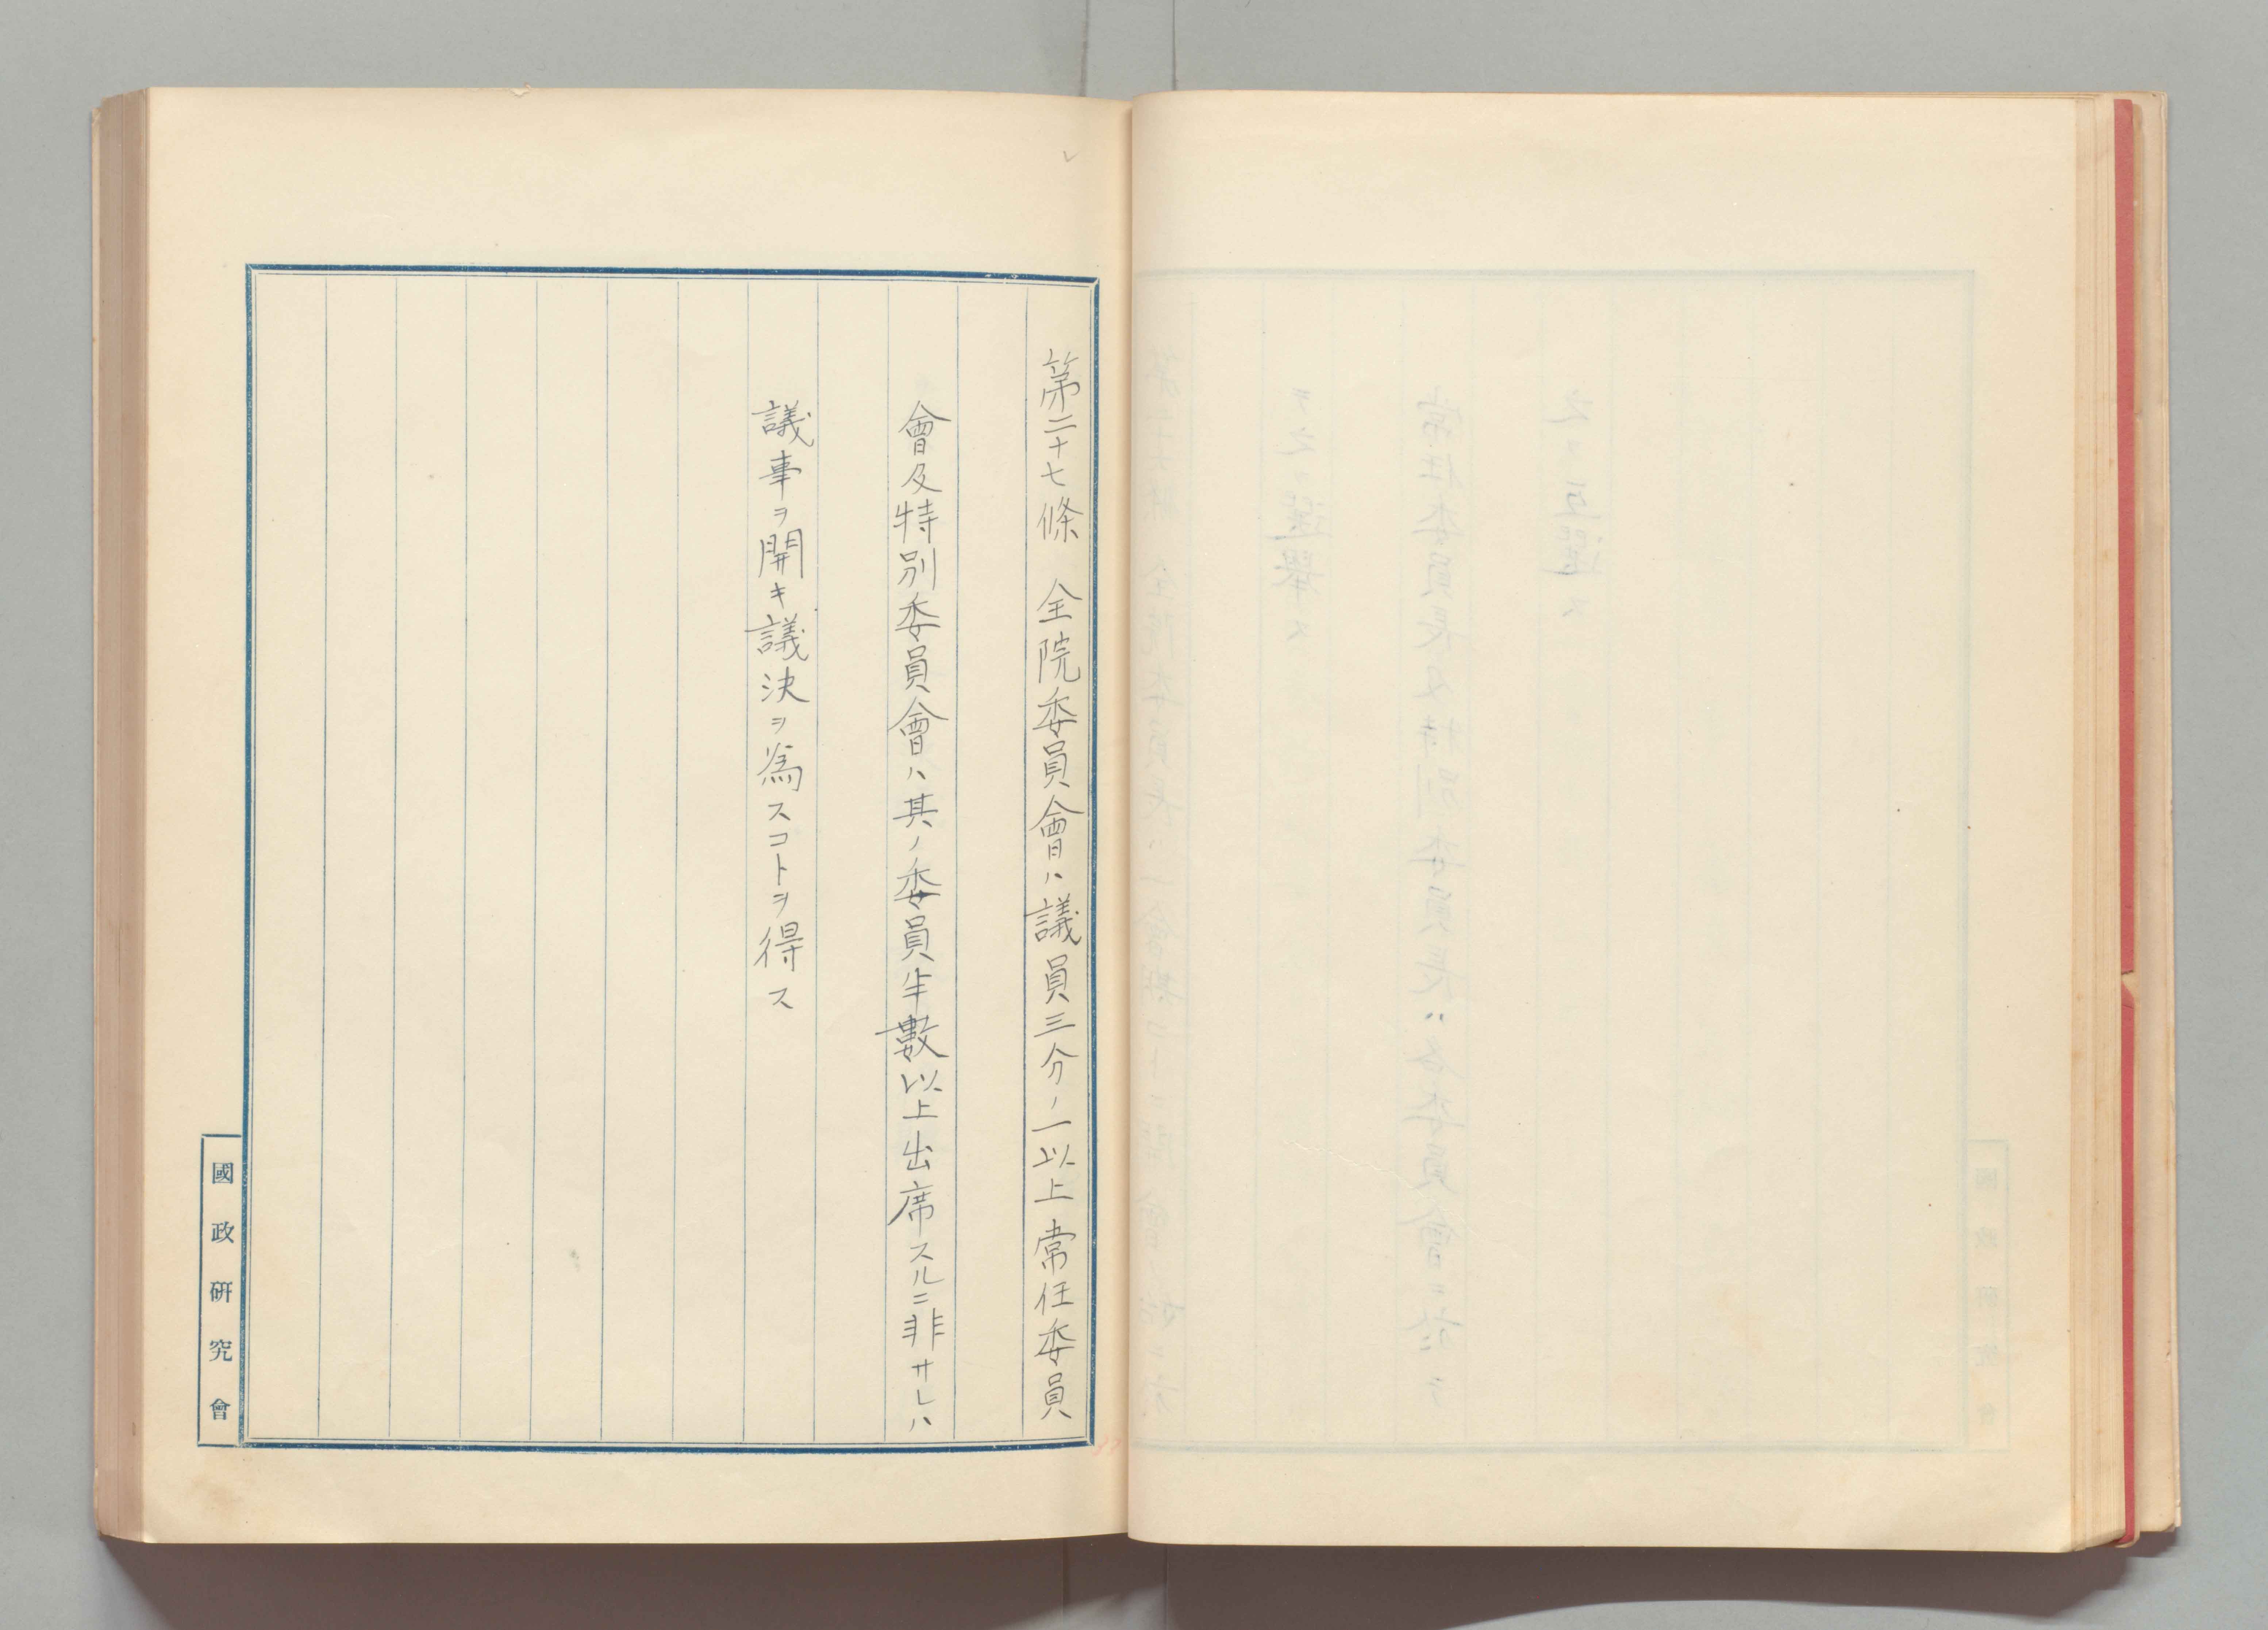 第二十七條　全院委員會ハ議員三分ノ一以上常任委員
會及特別委員會ハ其ノ委員半數以上出席スルニ非サレハ
議事ヲ開キ議決ヲ爲スコトヲ得ス
國政研究會